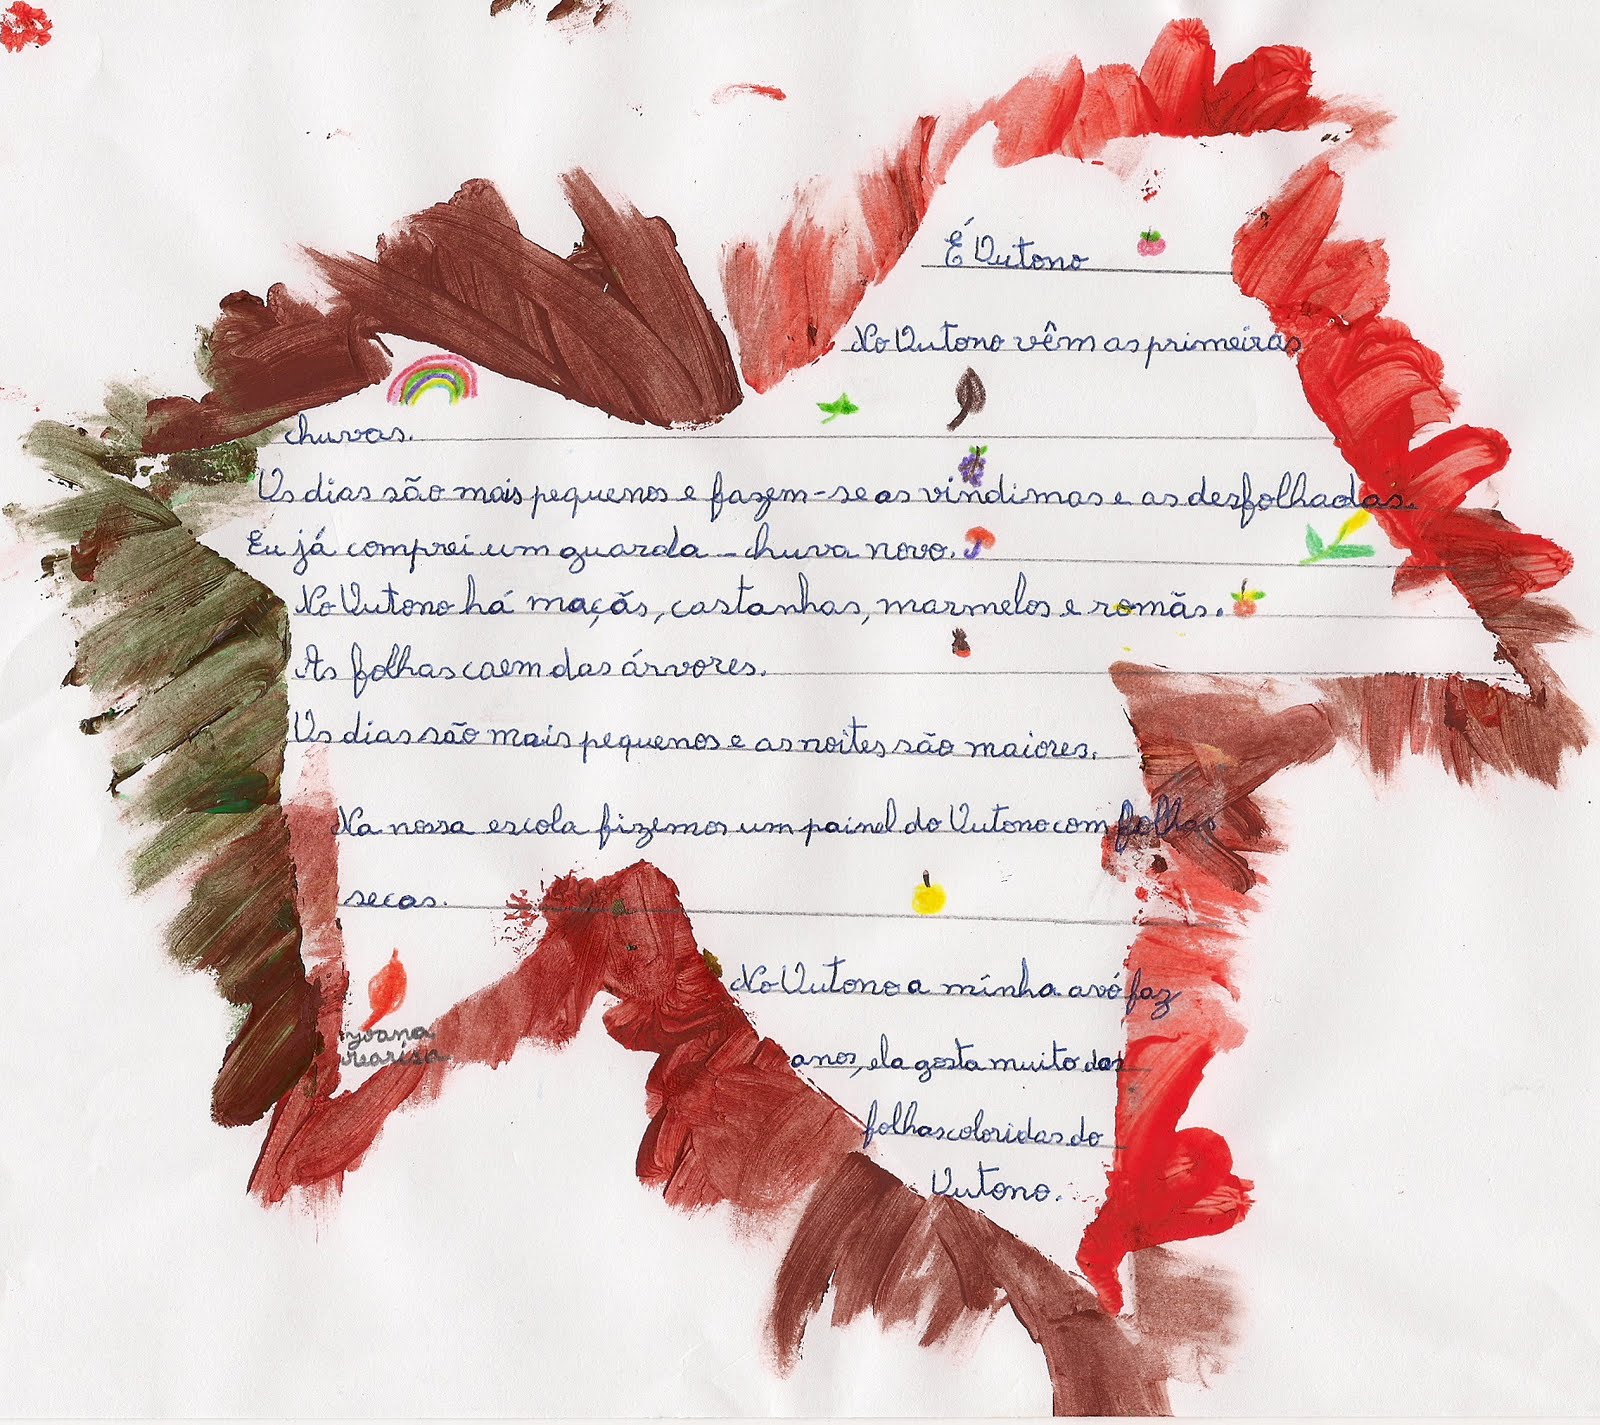 É Outono
No Outono vêm as primeiras
chuvas.
Os dias são mais pequenos e fazem-se as vindimas e as desfolhadas.
Eu já comprei um guarda-chuva novo.
No Outono há maçãs, castanhas, marmelos e romãs.
As folhas caem das árvores.
Os dias são mais pequenos e as noites são maiores.
Na nossa escola fizemos um painel do Outono com folhas
secas.
No Outono a minha avó faz
anos, ela gosta muito das
folhas coloridas do
Outono.
Joana
Marisa